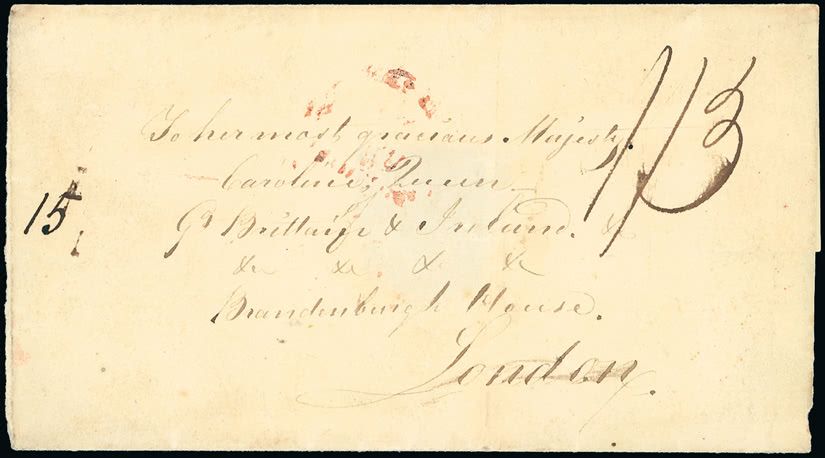 1/3
To her most gracious Majesty.
Caroline, Queen
Gt Brittain & Ireland. &c
&c &c &c &c
Brandenburgh House.
London.
15